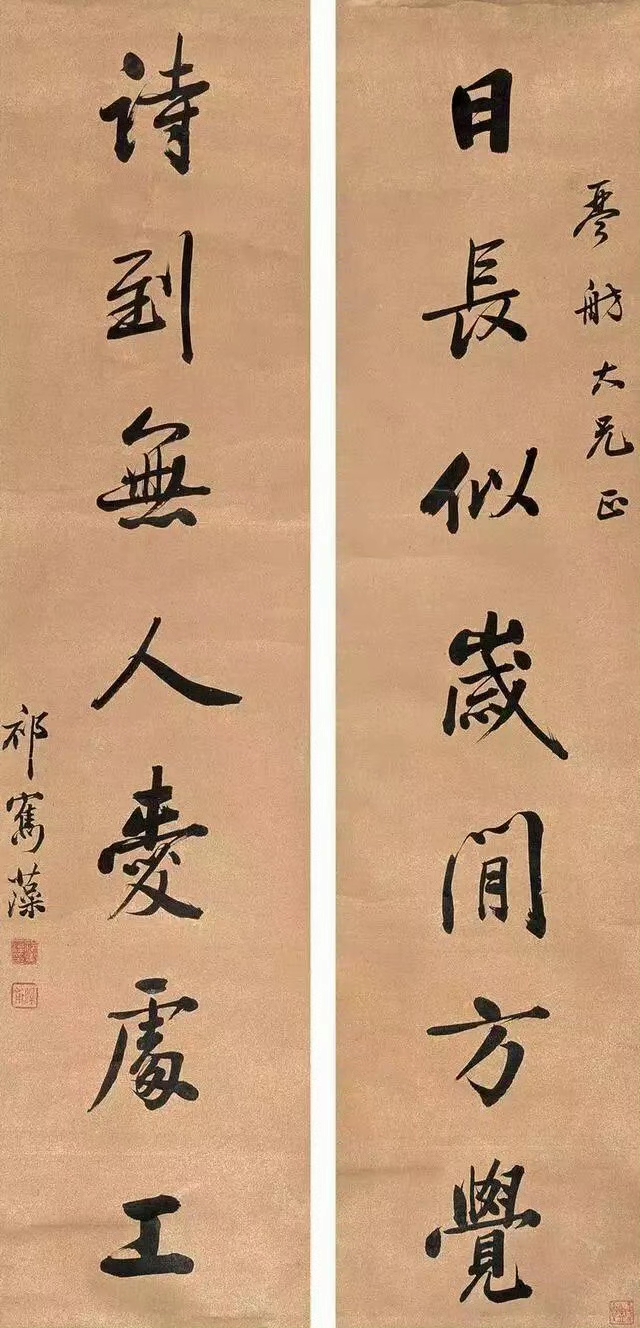 日長似歲閒方覺
琴舫大兄正
詩到無人愛處工
祁寯藻